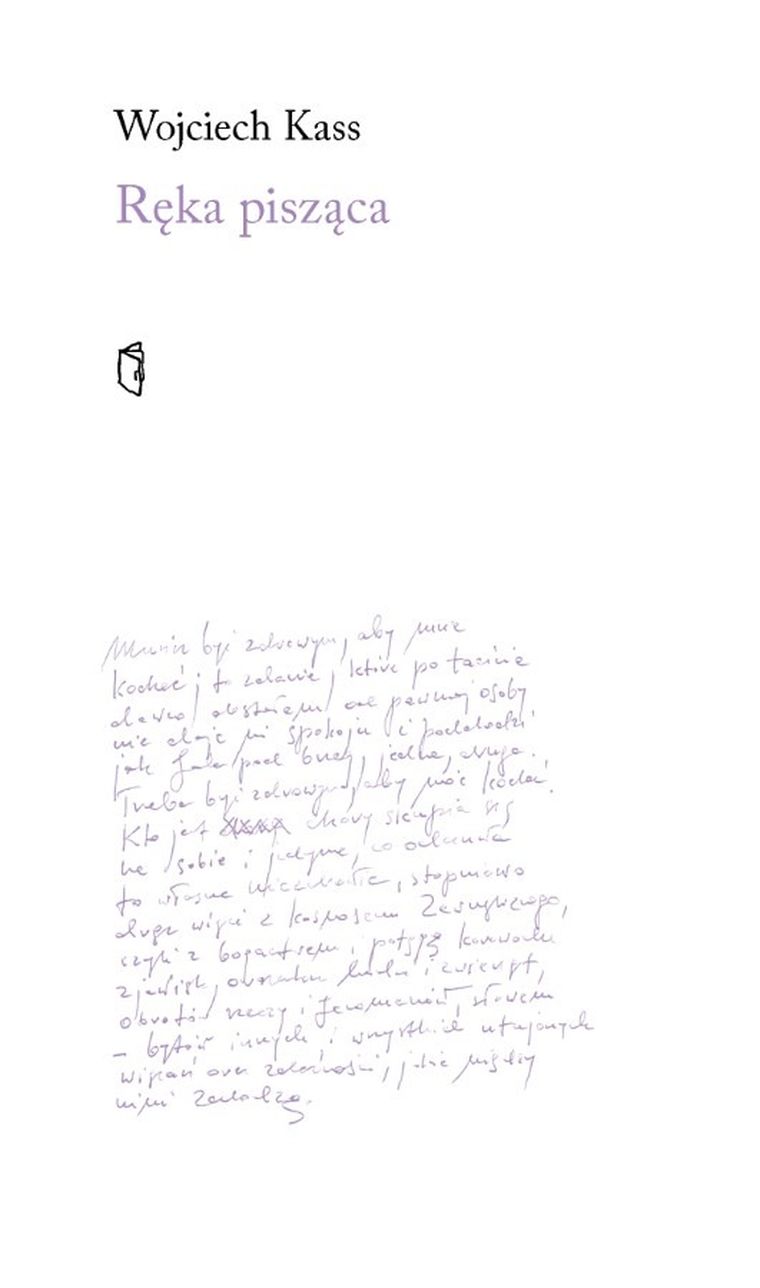 Wojciech Kass
Ręka pisząca
Musisz być zdrowym, aby mnie
kochać; to zdanie, które po łacinie
dawno od pewnej osoby
nie daje mi spokoju i podchodzi
jak fala pod brzeg, jedna, druga.
Trzeba być zdrowym, aby móc kochać.
Kto jest chory skupia się
na sobie i jedyne, co odczuwa
to własne, stopniowo
więź z kosmosem Zewnętrznego,
czyli z bogactwem i potęgą korowodu
zjawisk, orszaku ludzi i zwierząt,
obrotów rzeczy i fenomenów, słowem
– bytów innych i wszystkich utajonych
wiązań oraz zależności, jakie między
nimi zachodzą.